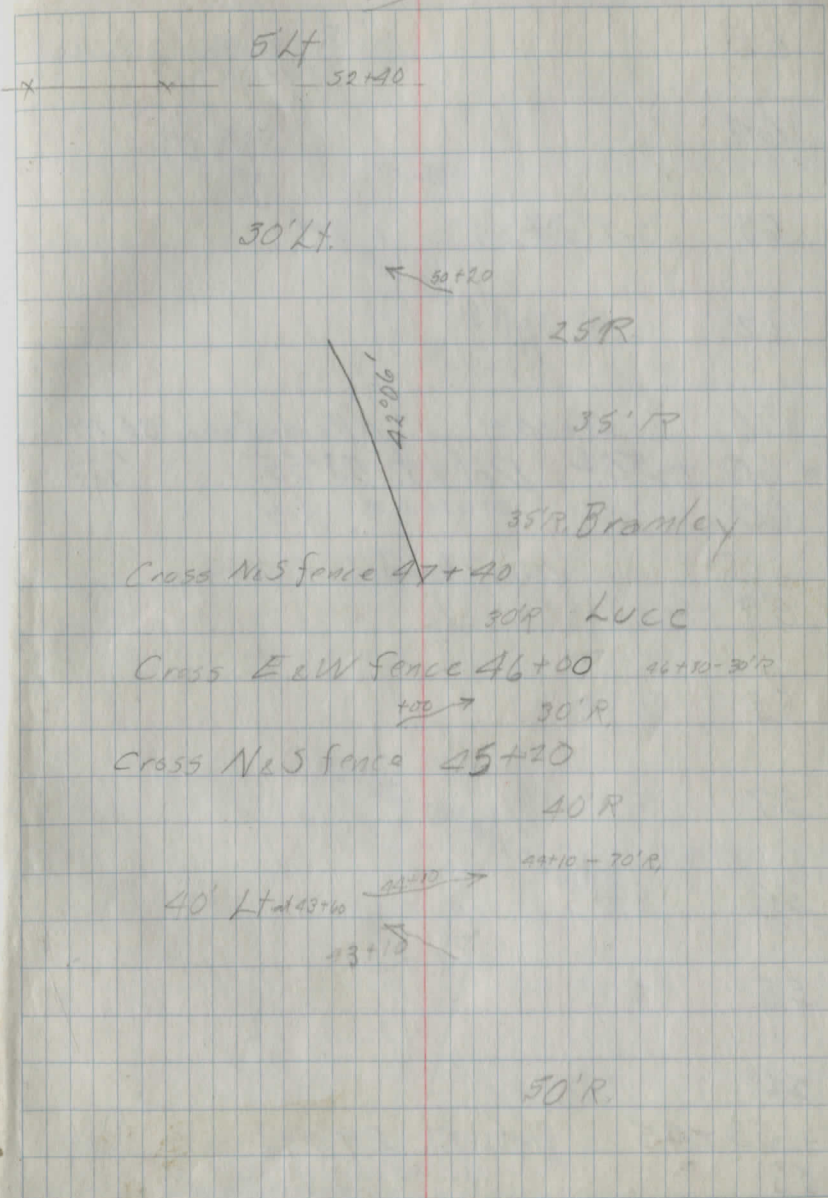 5' Lt
52+40
30' Lt.
50+20
25'R
42°06'
35' R
35'R. Bromley
Cross N&S fence 47+40
30'R Luce
Cross E&W fence 46+00 46+80-30'R
+00 30'R.
Cross N&S fence 45+20
40'R
44+10 - 70'R.
44+10
40' Lt at 43+60
43+10
50'R.